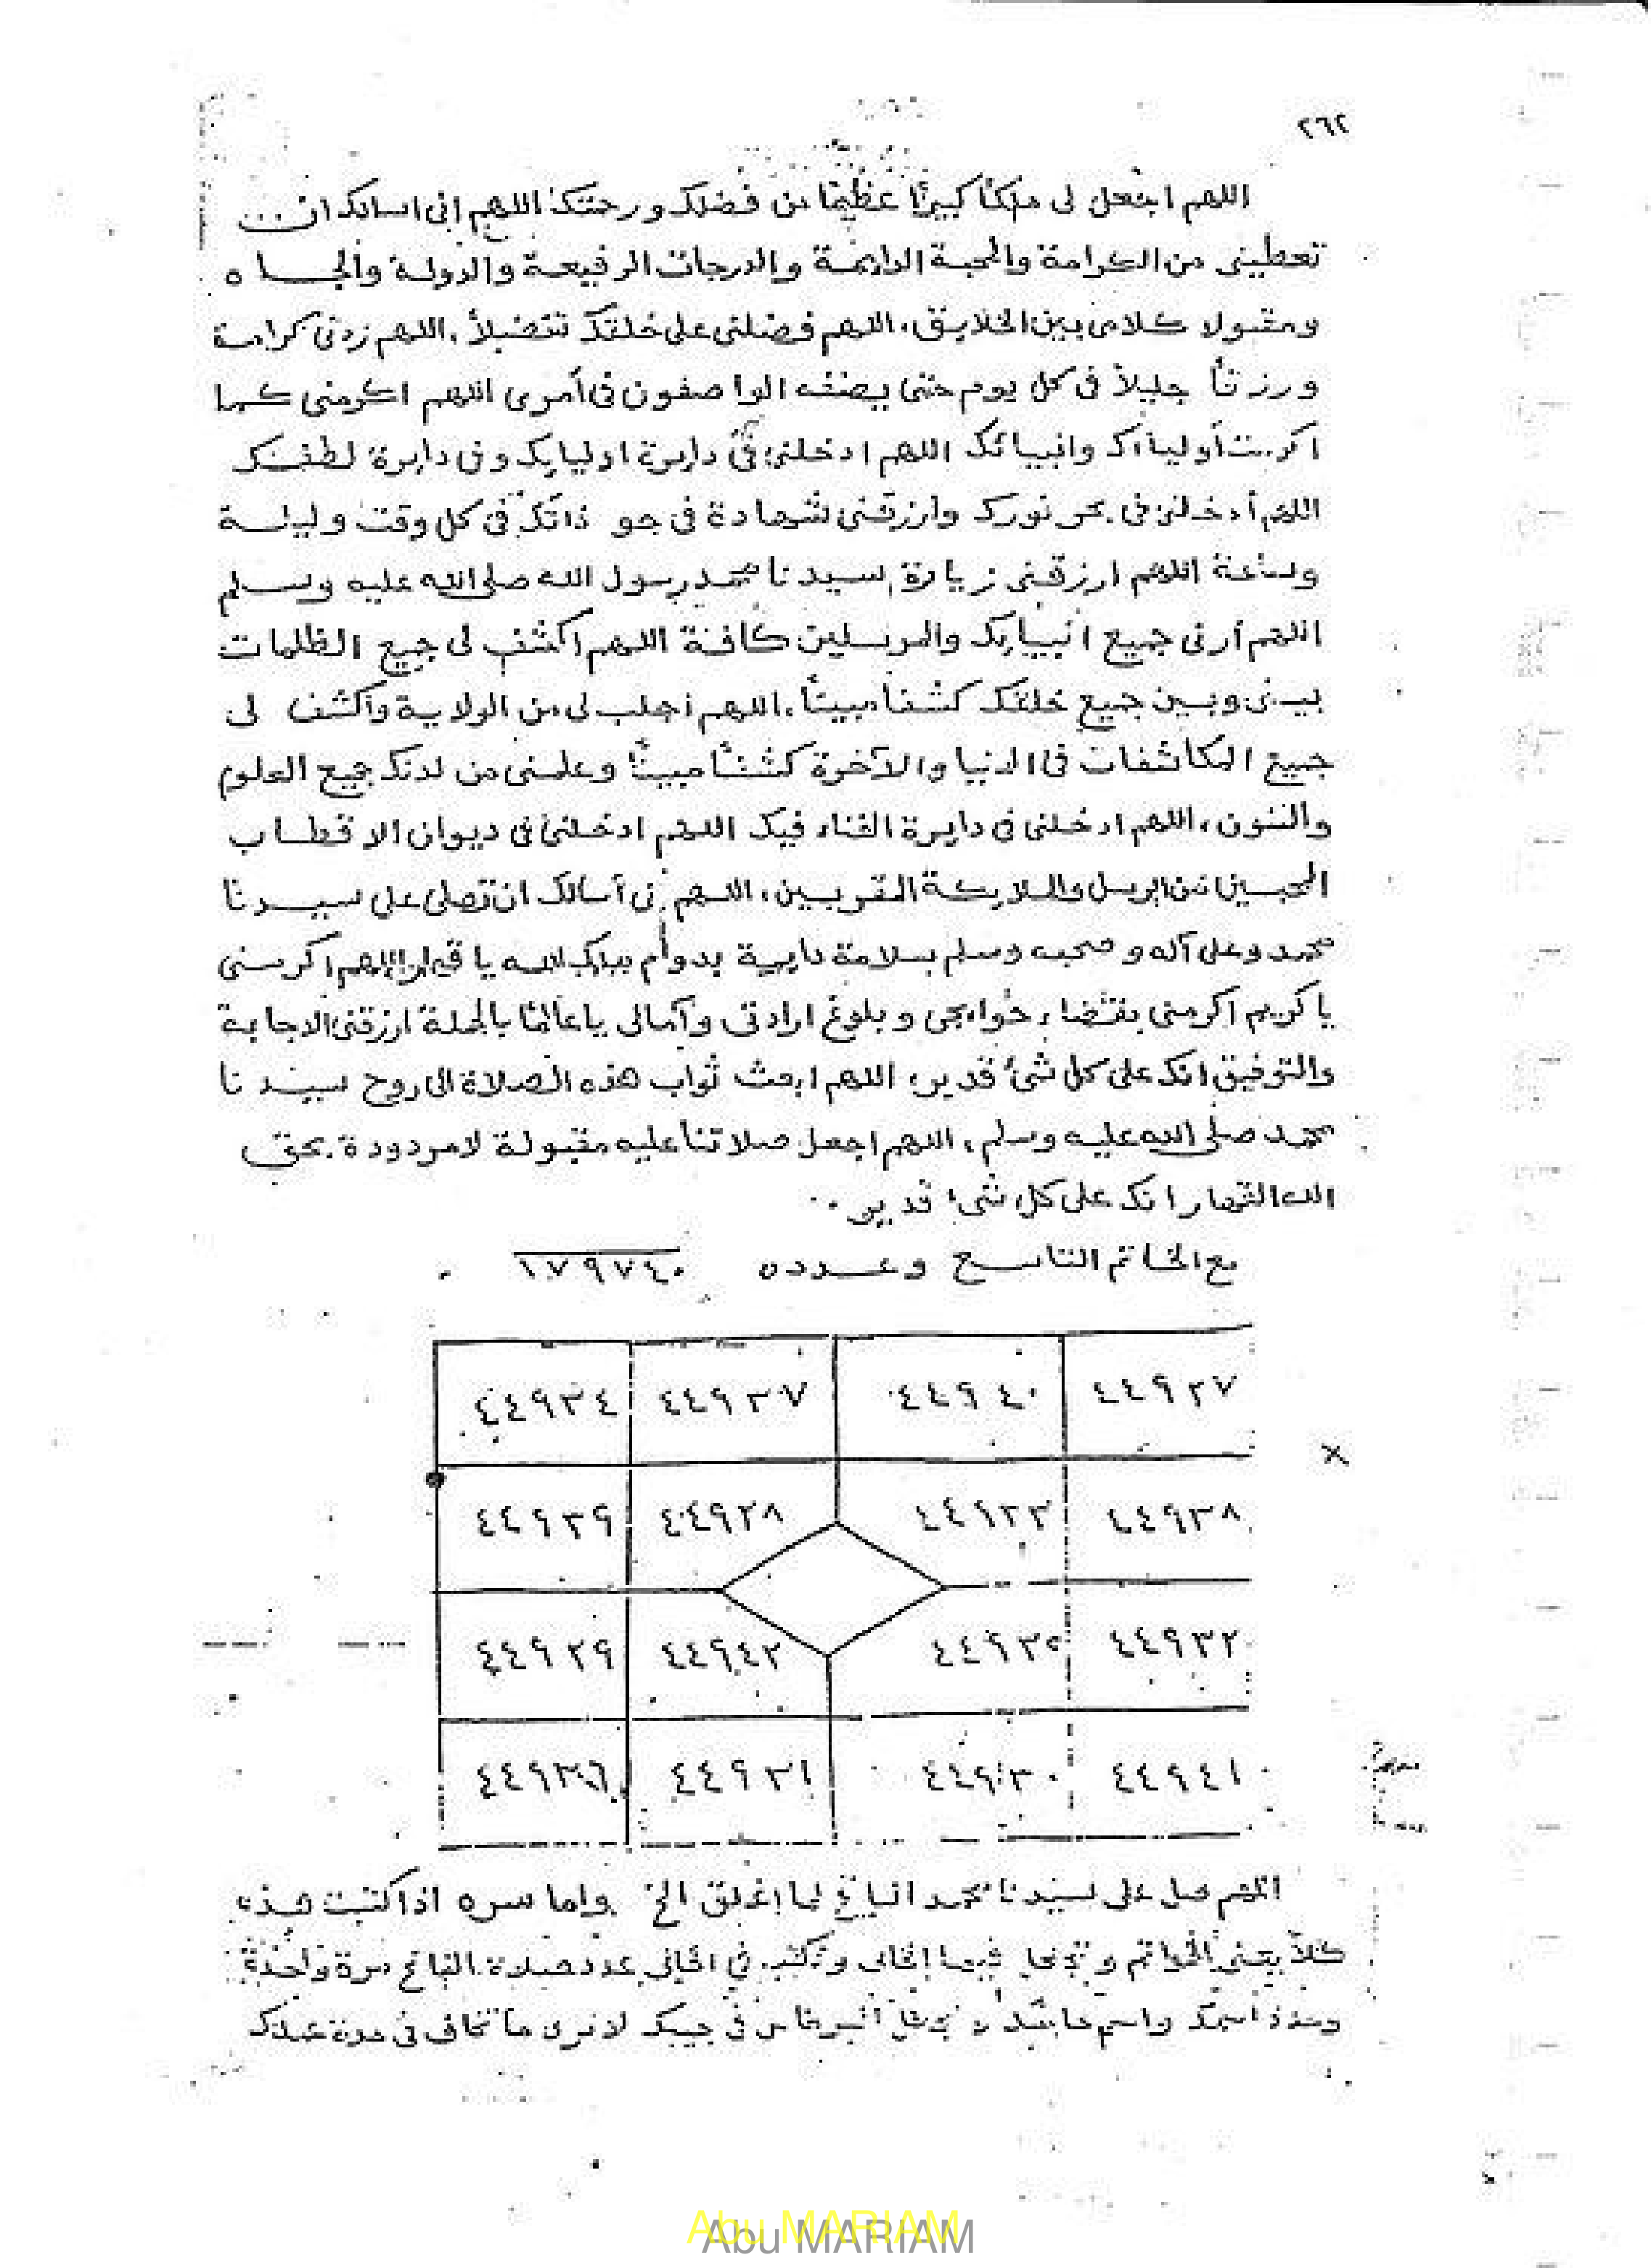 ٢٦٢
اللهم اجعل لى ملكًا كبيرًا عظيمًا من فضلك ورحمتك اللهم إنى اسالك ان
تعطينى من الكرامة والمحبة الدايمة والدرجات الرفيعة والدولة والجاه
ومقبولا كلامى بين الخلايق، اللهم فضلنى على خلقك تفضيلاً. اللهم زدنى كرامة
ورزقاً جليلاً فى كل يوم حتى يصفه الواصفون فى أمرى اللهم اكرمنى كما
اكرمت أولياءك وانبيائك اللهم ادخلنى فى دايرة اوليايك وفى دايرة لطفك
اللهم أدخلنى فى بحر نورك وارزقنى شهادة فى جو ذاتك فى كل وقت وليلة
وساعة اللهم ارزقنى زيارة سيدنا محمد رسول الله صلى الله عليه وسلم
اللهم أرنى جميع انبيايك والمرسلين كافة اللهم اكشف لى جميع الظلمات
بينى وبين جميع خلقك كشفا مبيناً. اللهم اجلب لى من الولاية واكشف لى
جميع المكاشفات فى الدنيا والآخرة كشفًا مبينًا وعلمنى من لدنك جميع العلوم
والفنون، اللهم ادخلنى فى دايرة الفناء فيك اللهم ادخلنى فى ديوان الاقطاب
المحبين من الرسل والملايكة المقربين، اللهم إنى أسالك ان تصلى على سيدنا
محمد وعلى آله وصحبه وسلم بسلامة دايمة بدوام ملك الله يا قهار اللهم اكرمنى
يا كريم اكرمنى بقضاء حوايجى وبلوغ ارادتى وآمالى يا عالمًا بالجملة ارزقنى الاجابة
والتوفيق انك على كل شئ قدير، اللهم ابعث ثواب هذه الصلاة الى روح سيدنا
محمد صلى الله عليه وسلم، اللهم اجعل صلاتنا عليه مقبولة لا مردودة بحق
الله القهار انك على كل شئ قدير
مع الخاتم التاسع وعدده ١٧٩٧٤٠
٤٤٩٢٧ ٤٤٩٤٠ ٤٤٩٣٧ ٤٤٩٣٤
٤٤٩٣٨ ٤٤٩٣٣ ٤٤٩٢٨ ٤٤٩٣٩
٤٤٩٣٢ ٤٤٩٣٥ ٤٤٩٤٢ ٤٤٩٢٩
٤٤٩٤١ ٤٤٩٣٠ ٤٤٩٣١ ٤٤٩٣٦
اللهم صل على سيدنا محمد الفاتح لما اغلق الخ واما سره اذا كتبت هذه
كلاً يعنى الخواتم فيها الخالى وتكتب فى الخالى عدد صلاة الفاتح مرة واحدة
وعدد اسمك واسم فى جيبك لا ترى ما تخاف فى مدة
Abu MARIAM
Abu MARIAM